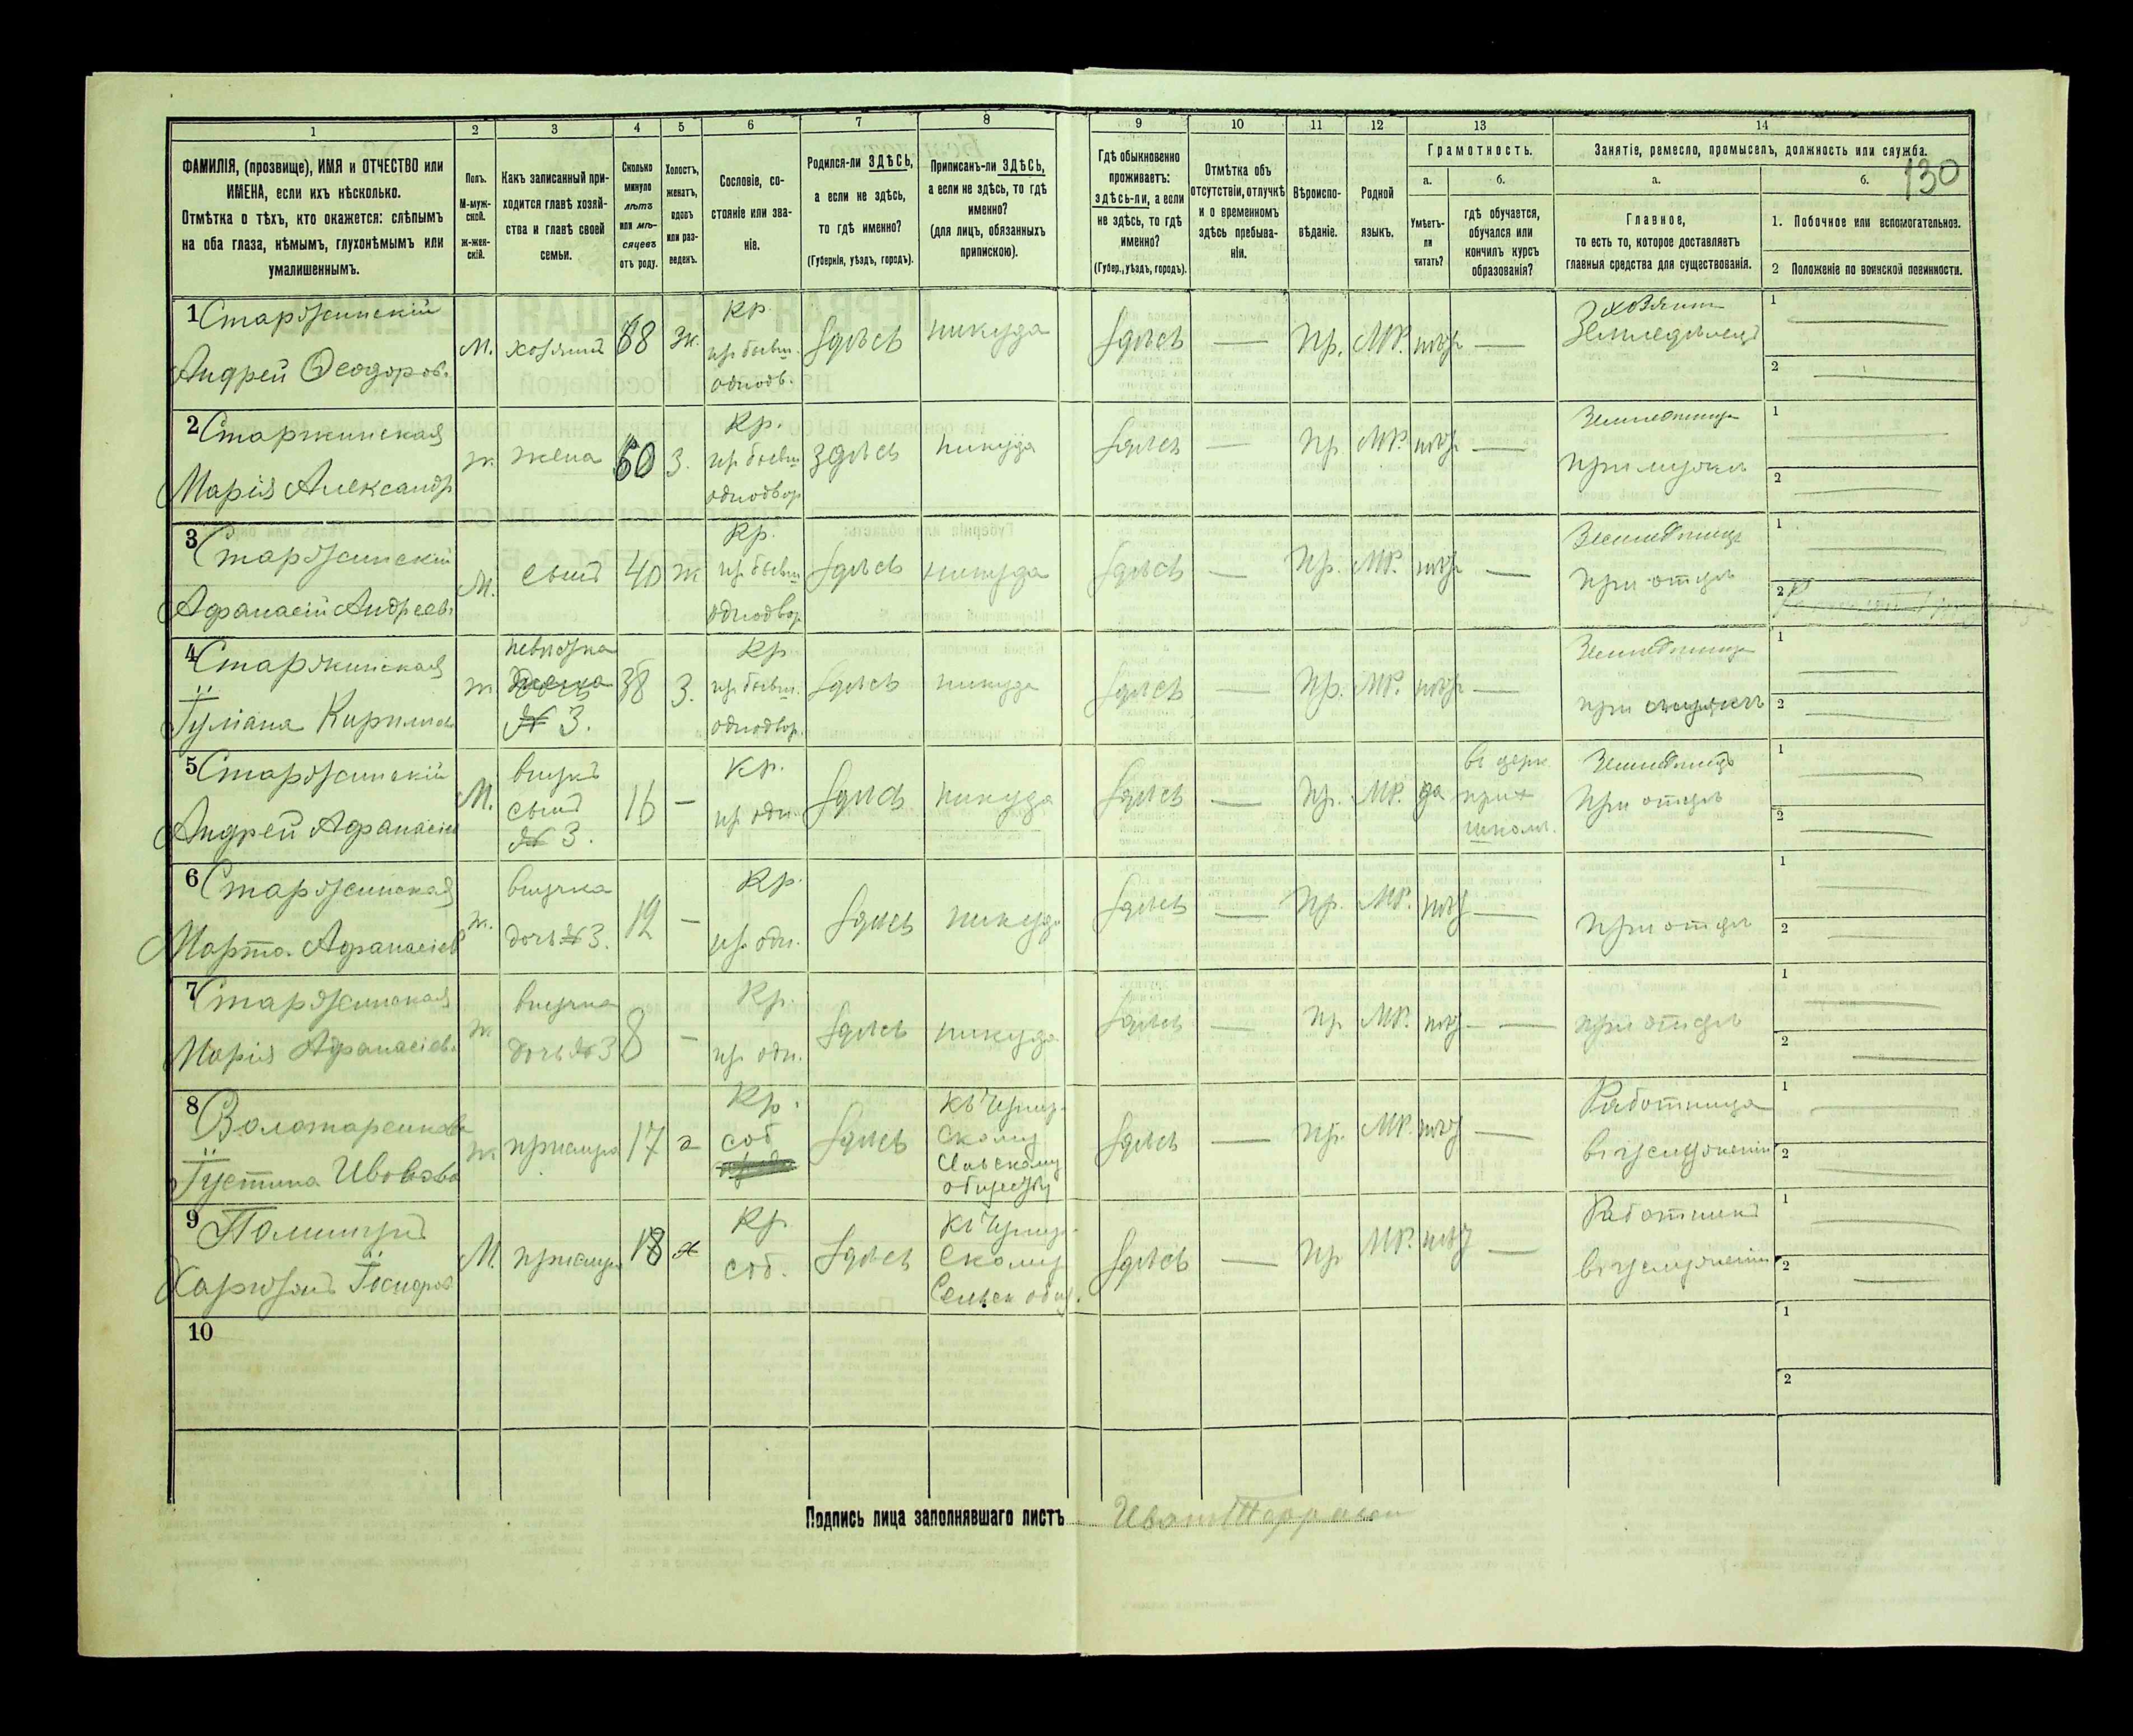 130
1 2 3 4 5 6 7 8 9 10 11 12 13 14
ФАМИЛІЯ, (прозвище), ИМЯ и ОТЧЕСТВО или
ИМЕНА, если ихъ нѣсколько.
Отмѣтка о тѣхъ, кто окажется: слѣпымъ
на оба глаза, нѣмымъ, глухонѣмымъ или
умалишеннымъ.
Полъ.
М-муж-
ской.
ж-жен-
скій.
Какъ записанный при-
ходится главѣ хозяй-
ства и главѣ своей
семьи.
Сколько
минуло
лѣтъ
или мѣ-
сяцевъ
отъ роду.
Холостъ,
женатъ,
вдовъ
или раз-
веденъ.
Сословіе, со-
стояніе или зва-
ніе.
Родился-ли ЗДѢСЬ,
а если не здѣсь,
то гдѣ именно?
(Губернія, уѣздъ, городъ).
Приписанъ-ли ЗДѢСЬ,
а если не здѣсь, то гдѣ
именно?
(для лицъ, обязанныхъ
припискою).
Гдѣ обыкновенно
проживаетъ:
здѣсь-ли, а если
не здѣсь, то гдѣ
именно?
(Губер., уѣздъ, городъ).
Отмѣтка объ
отсутствіи, отлучкѣ
и о временномъ
здѣсь пребыва-
ніи.
Вѣроиспо-
вѣданіе.
Родной
языкъ.
Грамотность.
а.
Умѣетъ-
ли
читать?
б.
гдѣ обучается,
обучался или
кончилъ курсъ
образованія?
Занятіе, ремесло, промыселъ, должность или служба.
а.
Главное,
то есть то, которое доставляетъ
главныя средства для существованія.
б.
1. Побочное или вспомогательное.
2 Положеніе по воинской повинности.
1 Старжинскій
Андрей Ѳеодоров.
М. хозяинъ 68 ж.
Кр.
из бывш.
однодв.
здѣсь никуда здѣсь — Пр. МР. нѣтъ —
хозяинъ
Земледѣлецъ
1 —
2 —
2 Старжинская
Марія Александр
ж. жена 60 з.
Кр.
из бывш
однодвор
здѣсь никуда здѣсь — Пр. МР. нѣтъ —
при мужѣ
1 —
2 —
3 Старжинскій
Афанасій Андреев.
М. сынъ 40 ж
Кр.
из бывш
однодвор
здѣсь никуда здѣсь — Пр. МР. нѣтъ —
при отцѣ
1 —
2
4 Старжинская
Іуліана Кирилов
ж невѣстка
№ 3.
38 з.
Кр
из бывш.
однодвор.
здѣсь никуда здѣсь — Пр. МР. нѣтъ —
при
1 —
2 —
5 Старжинскій
Андрей Афанасіев
М.
внукъ
сынъ
№ 3.
16 —
Кр.
из одн.
здѣсь никуда здѣсь — Пр. МР. да
въ церк
прих
школѣ.
при отцѣ
1 —
2 —
6 Старжинская
Марта Афанасіев
ж.
внучка
дочь № 3.
12 —
Кр.
из одн.
здѣсь никуда здѣсь — Пр. МР. нѣтъ —
при отцѣ
1 —
2 —
7 Старжинская
Марія Афанасіев.
ж
внучка
дочь № 3
8 —
Кр.
из одн.
здѣсь никуда здѣсь — Пр МР. нѣтъ —
при отцѣ
1 —
2 —
8
Іустина
ж прислуга 17
Кр.
соб
здѣсь
обществу
здѣсь — Пр. МР. нѣтъ —
Работница
въ услуженіи
1 —
2 —
9
М. прислуг 18
Кр
соб.
здѣсь
Сельск общ.
здѣсь — Пр МР. нѣтъ —
Работникъ
въ услуженіи
1 —
2 —
10
1
2
Подпись лица заполнявшаго листъ